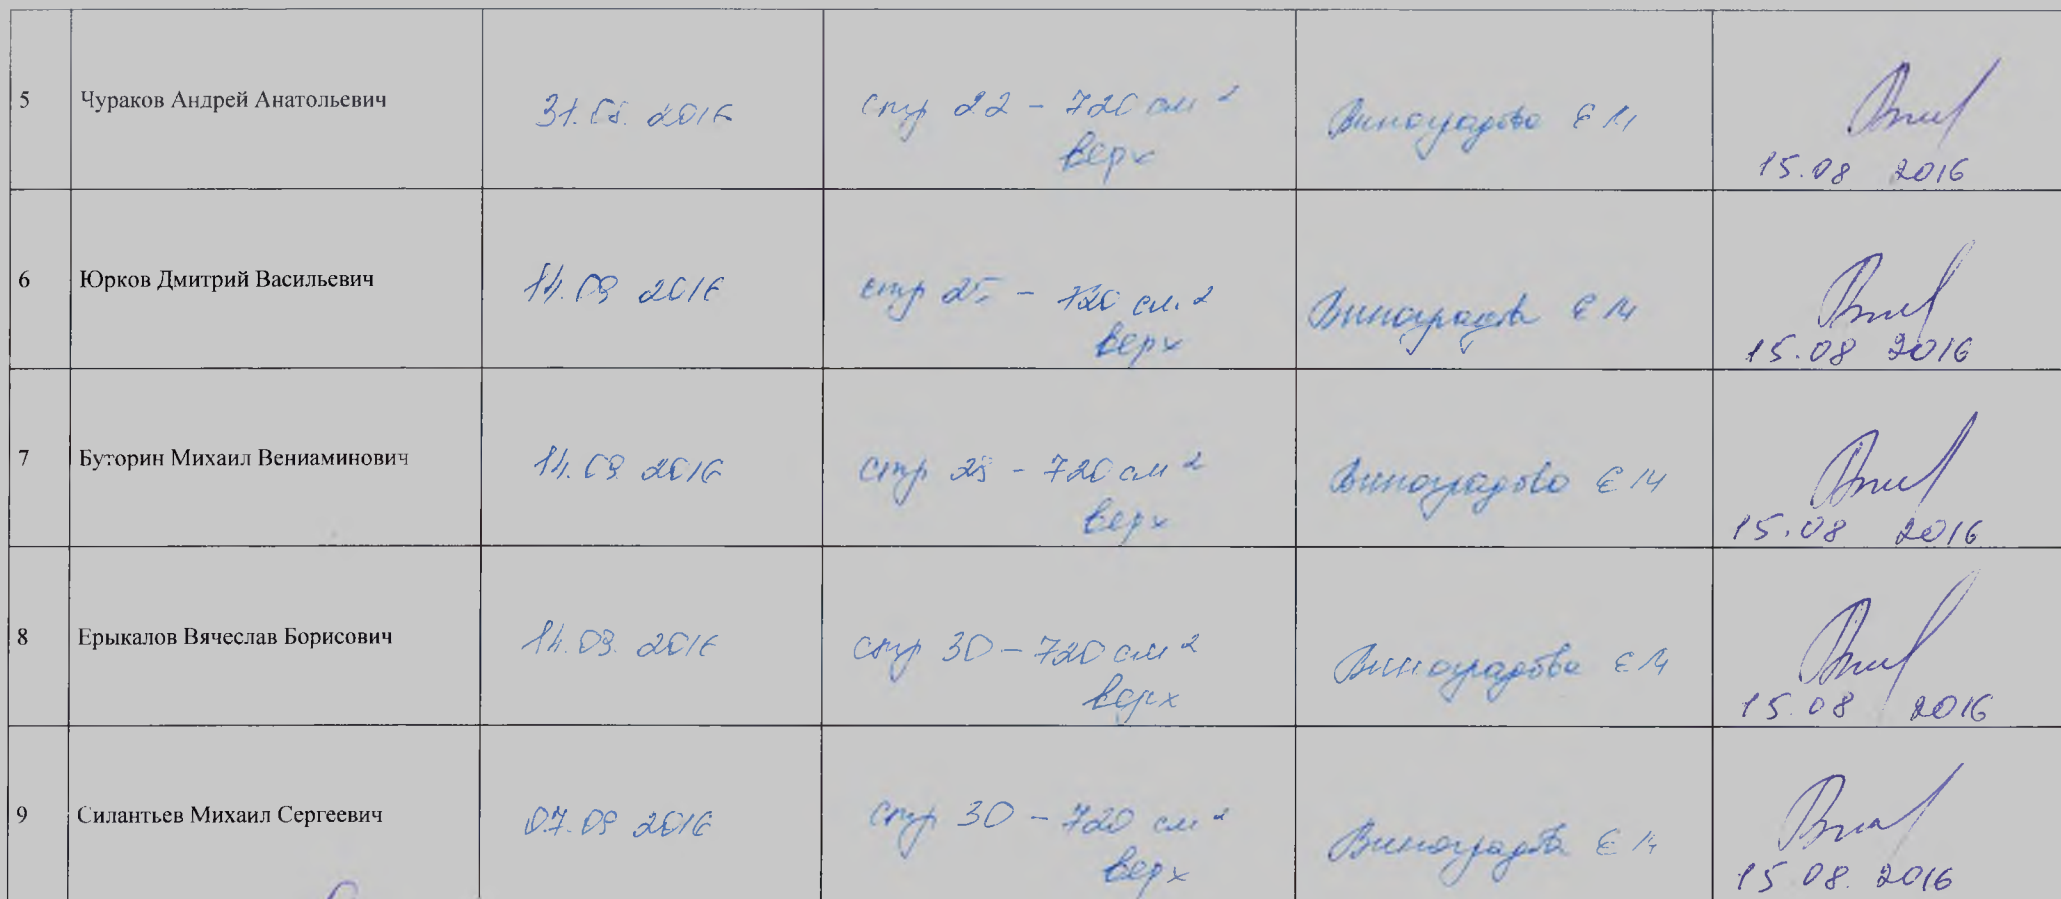 5 Чураков Андрей Анатольевич 31.08.2016 стр 22 - 720 см 2 Виноградова Е М
верх
15.08 2016
6 Юрков Дмитрий Васильевич 14.09 2016 стр - 720 см.2 Виноградова Е М
верх
15.08 2016
7 Буторин Михаил Вениаминович 14.09.2016 стр - 720 см 2 Виноградова Е М
верх
15.08 2016
8 Ерыкалов Вячеслав Борисович 14.09.2016 стр 30 - 720 см 2 Виноградова Е М
верх
15.08 2016
9 Силантьев Михаил Сергеевич 07.09 2016 стр 30 - 720 см 2 Виноградова Е М
верх
15.08.2016